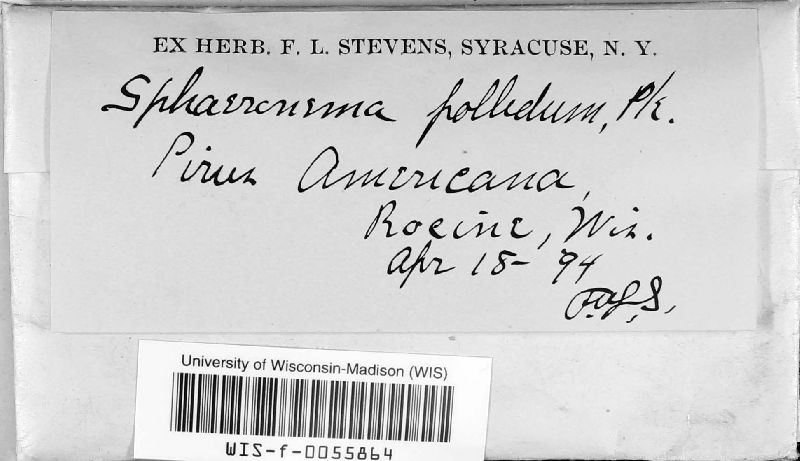 EX HERB. F. L. STEVENS, SYRACUSE, N. Y.
Sphaeronema pallidum, Pk.
Pirus Americana,
Racine, Wis.
Apr 18-94
F.L.S.
University of Wisconsin-Madison (WIS)
WIS-f-0055864